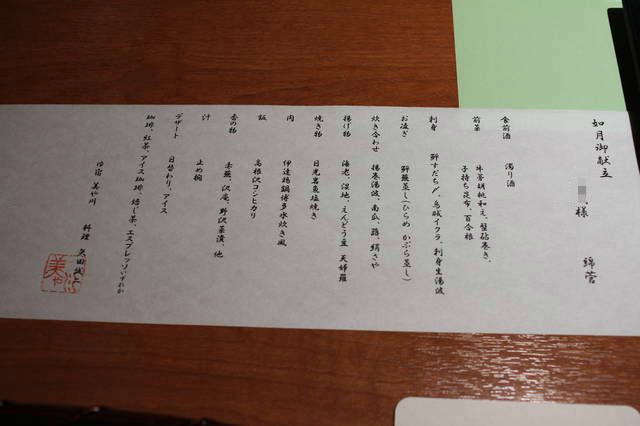 如月御献立
様 綿菅
食前酒 濁り酒
前菜 牛蒡胡桃和え、蟹砧巻き、
子持ち昆布、百合根
刺身 鮃すだち〆、烏賊イクラ、刺身生湯波
お凌ぎ 鮃蕪蒸し(ひらめ かぶら蒸し)
炊き合わせ 揚巻湯波、南瓜、蕗、絹さや
揚げ物 海老、湿地、えんどう豆 天婦羅
焼き物 日光岩魚塩焼き
肉 伊達鶏鍋博多水炊き風
飯 高根沢コシヒカリ
香の物 赤蕪、沢庵、野沢菜漬、他
汁 止め椀
デザート 日替わり、アイス
珈琲、紅茶、アイス珈琲、焙じ茶、エスプレッソいずれか
ゆ宿 美や川
料理
美や川